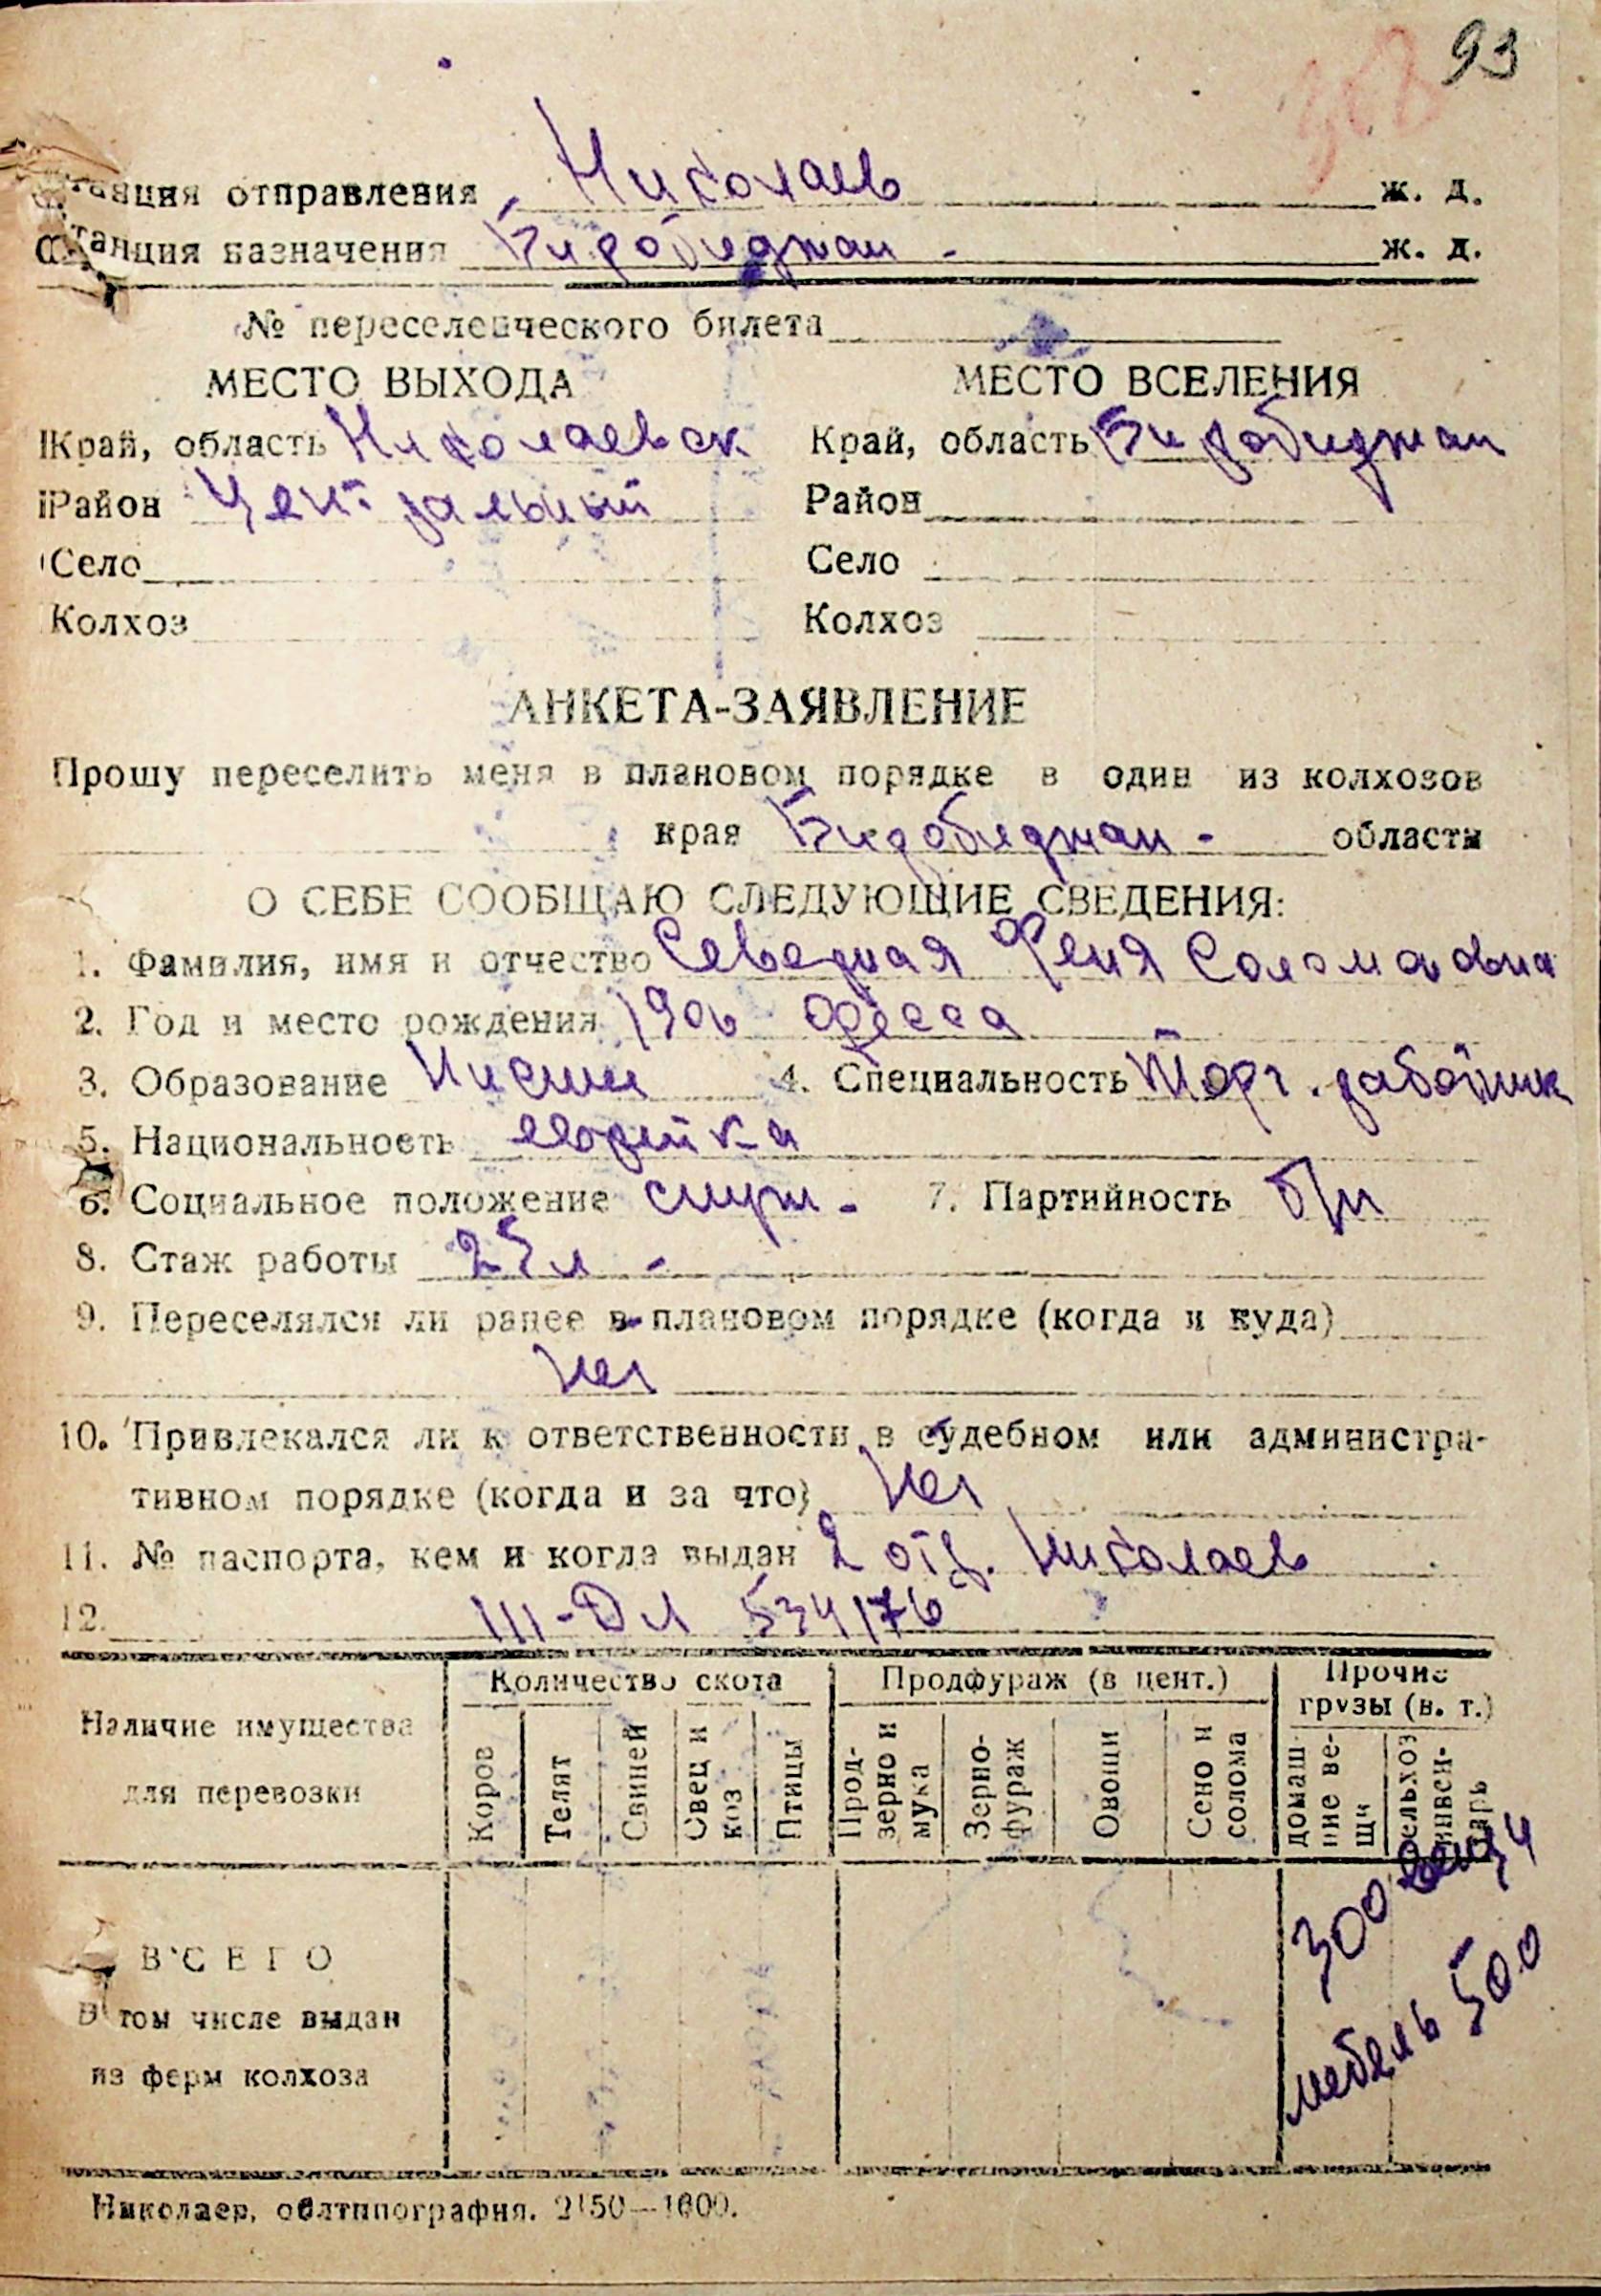 93
Станция отправления Николаев ж. д.
Станция назначения Биробиджан - ж. д.
№ переселенческого билета
МЕСТО ВЫХОДА МЕСТО ВСЕЛЕНИЯ
Край, область Николаевск Край, область Биробиджан
Район Центральный Район
Село Село
Колхоз Колхоз
АНКЕТА-ЗАЯВЛЕНИЕ
Прошу переселить меня в плановом порядке в один из колхозов
края Биробиджан - области
О СЕБЕ СООБЩАЮ СЛЕДУЮЩИЕ СВЕДЕНИЯ:
1. Фамилия, имя и отчество Феня Соломоновна
2. Год и место рождения 1906 Одесса
3. Образование Низшее 4. Специальность Торг. работник
5. Национальность еврейка
6. Социальное положение служ. 7. Партийность б/п
8. Стаж работы 25 л -
9. Переселялся ли ранее в плановом порядке (когда и куда)
Нет
10. Привлекался ли к ответственности в судебном или администра-
тивном порядке (когда и за что) Нет
11. № паспорта, кем и когда выдан 2 отд. Николаев
12. III-ДИ 534176
Наличие имущества для перевозки
Количество скота Продфураж (в цент.) Прочие грузы (в. т.)
Коров Телят Свиней Овец и коз Птицы Прод-зерно и мука Зерно-фураж Овощи Сено и солома домаш-ние ве-щи сельхоз инвен-тарь
300 вещи
мебель 500
ВСЕГО
В том числе выдан
из ферм колхоза
Николаев, облтипография. 2150—1600.